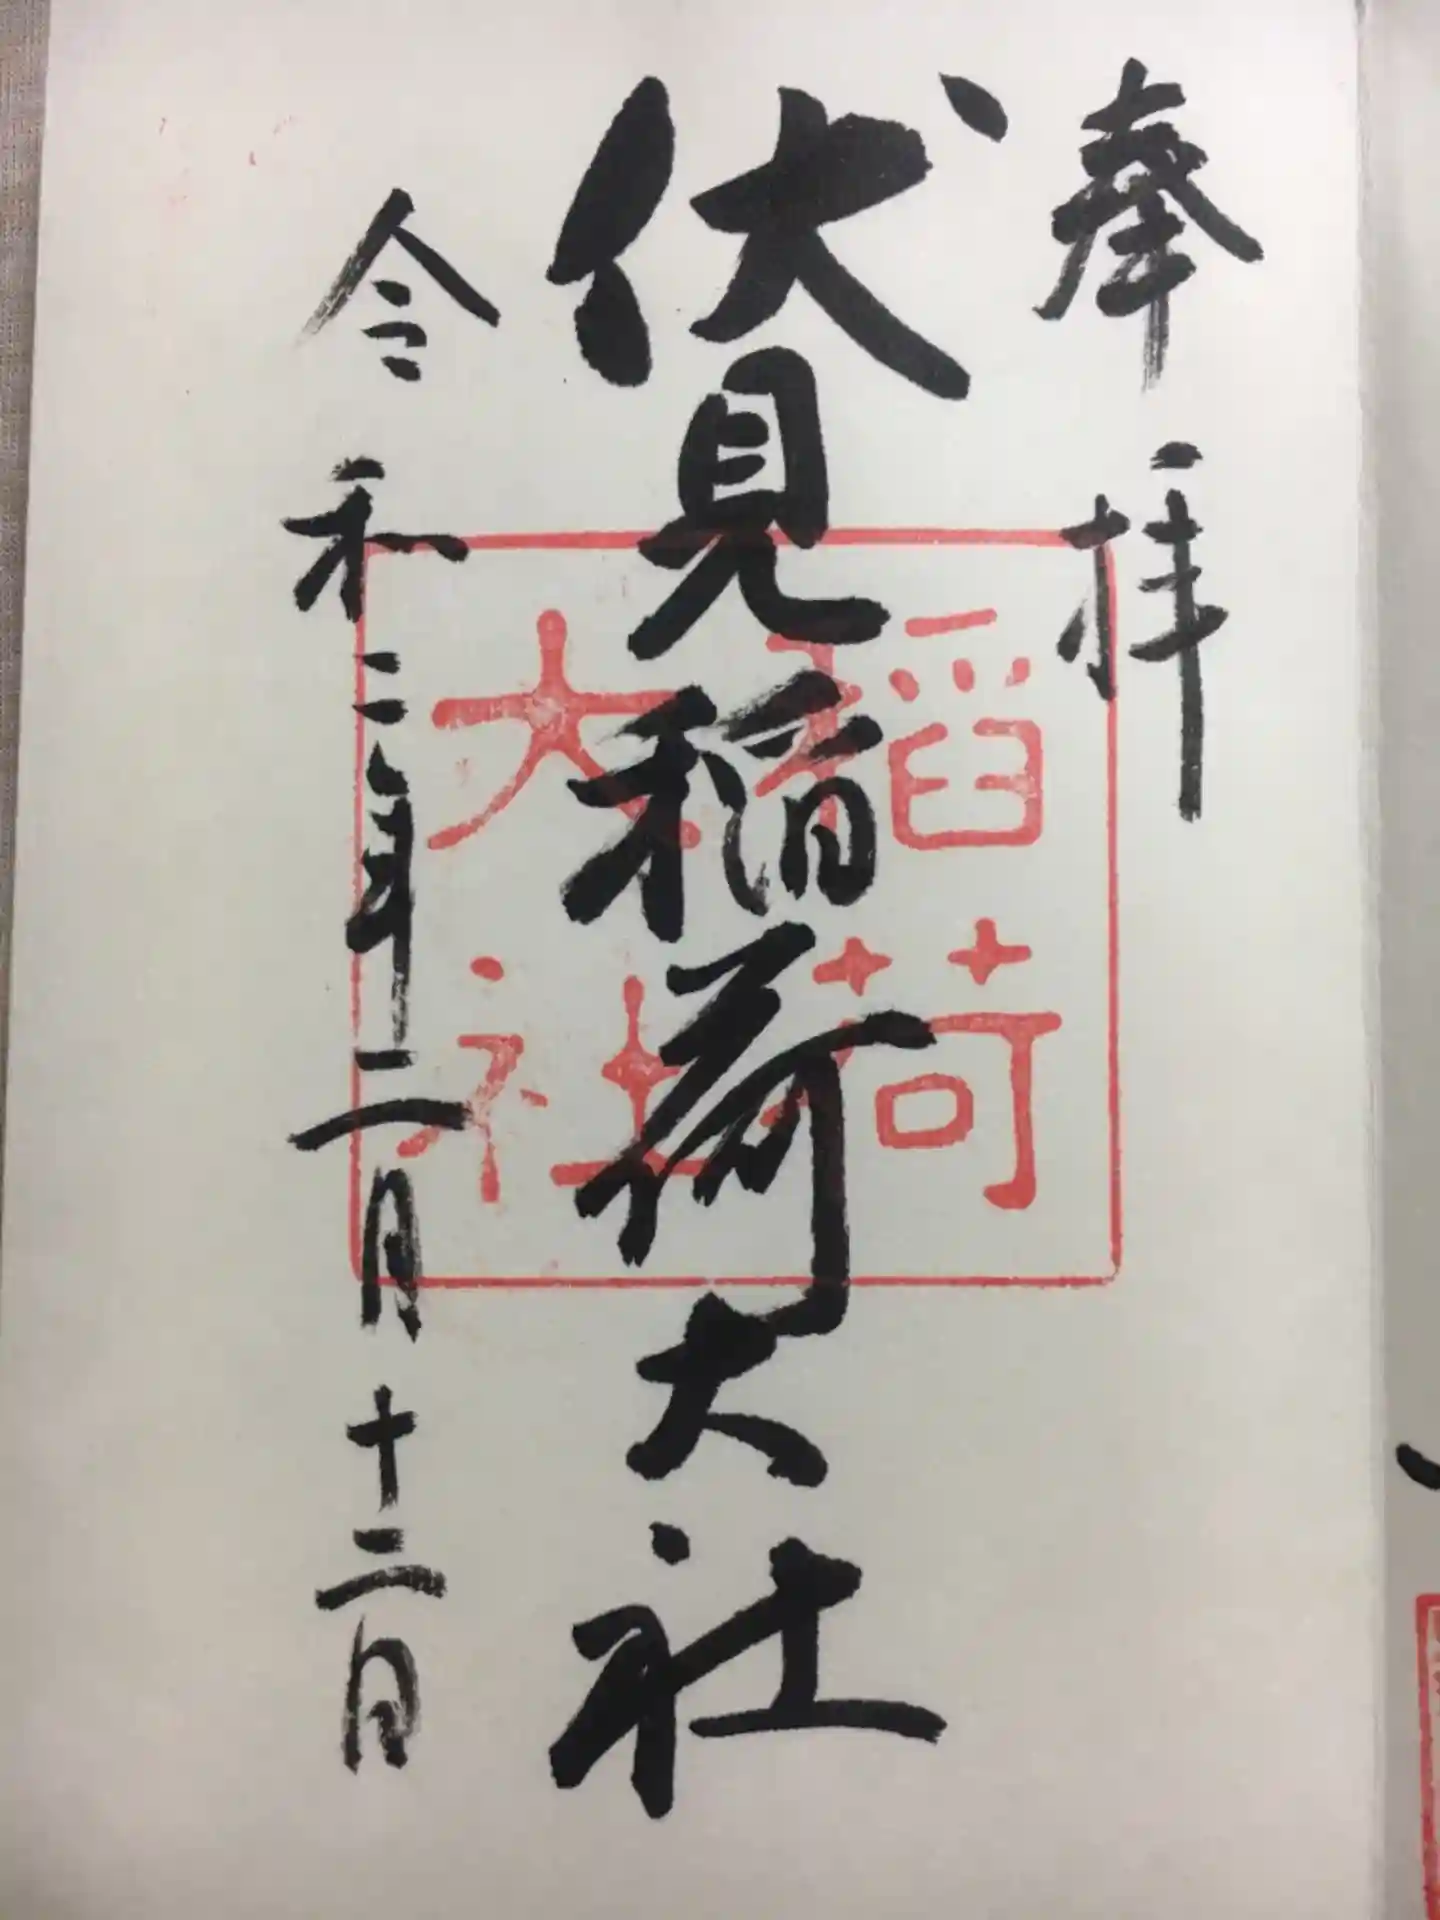 奉拝
伏見稲荷大社
稲荷
大社
令和二年二月十二日